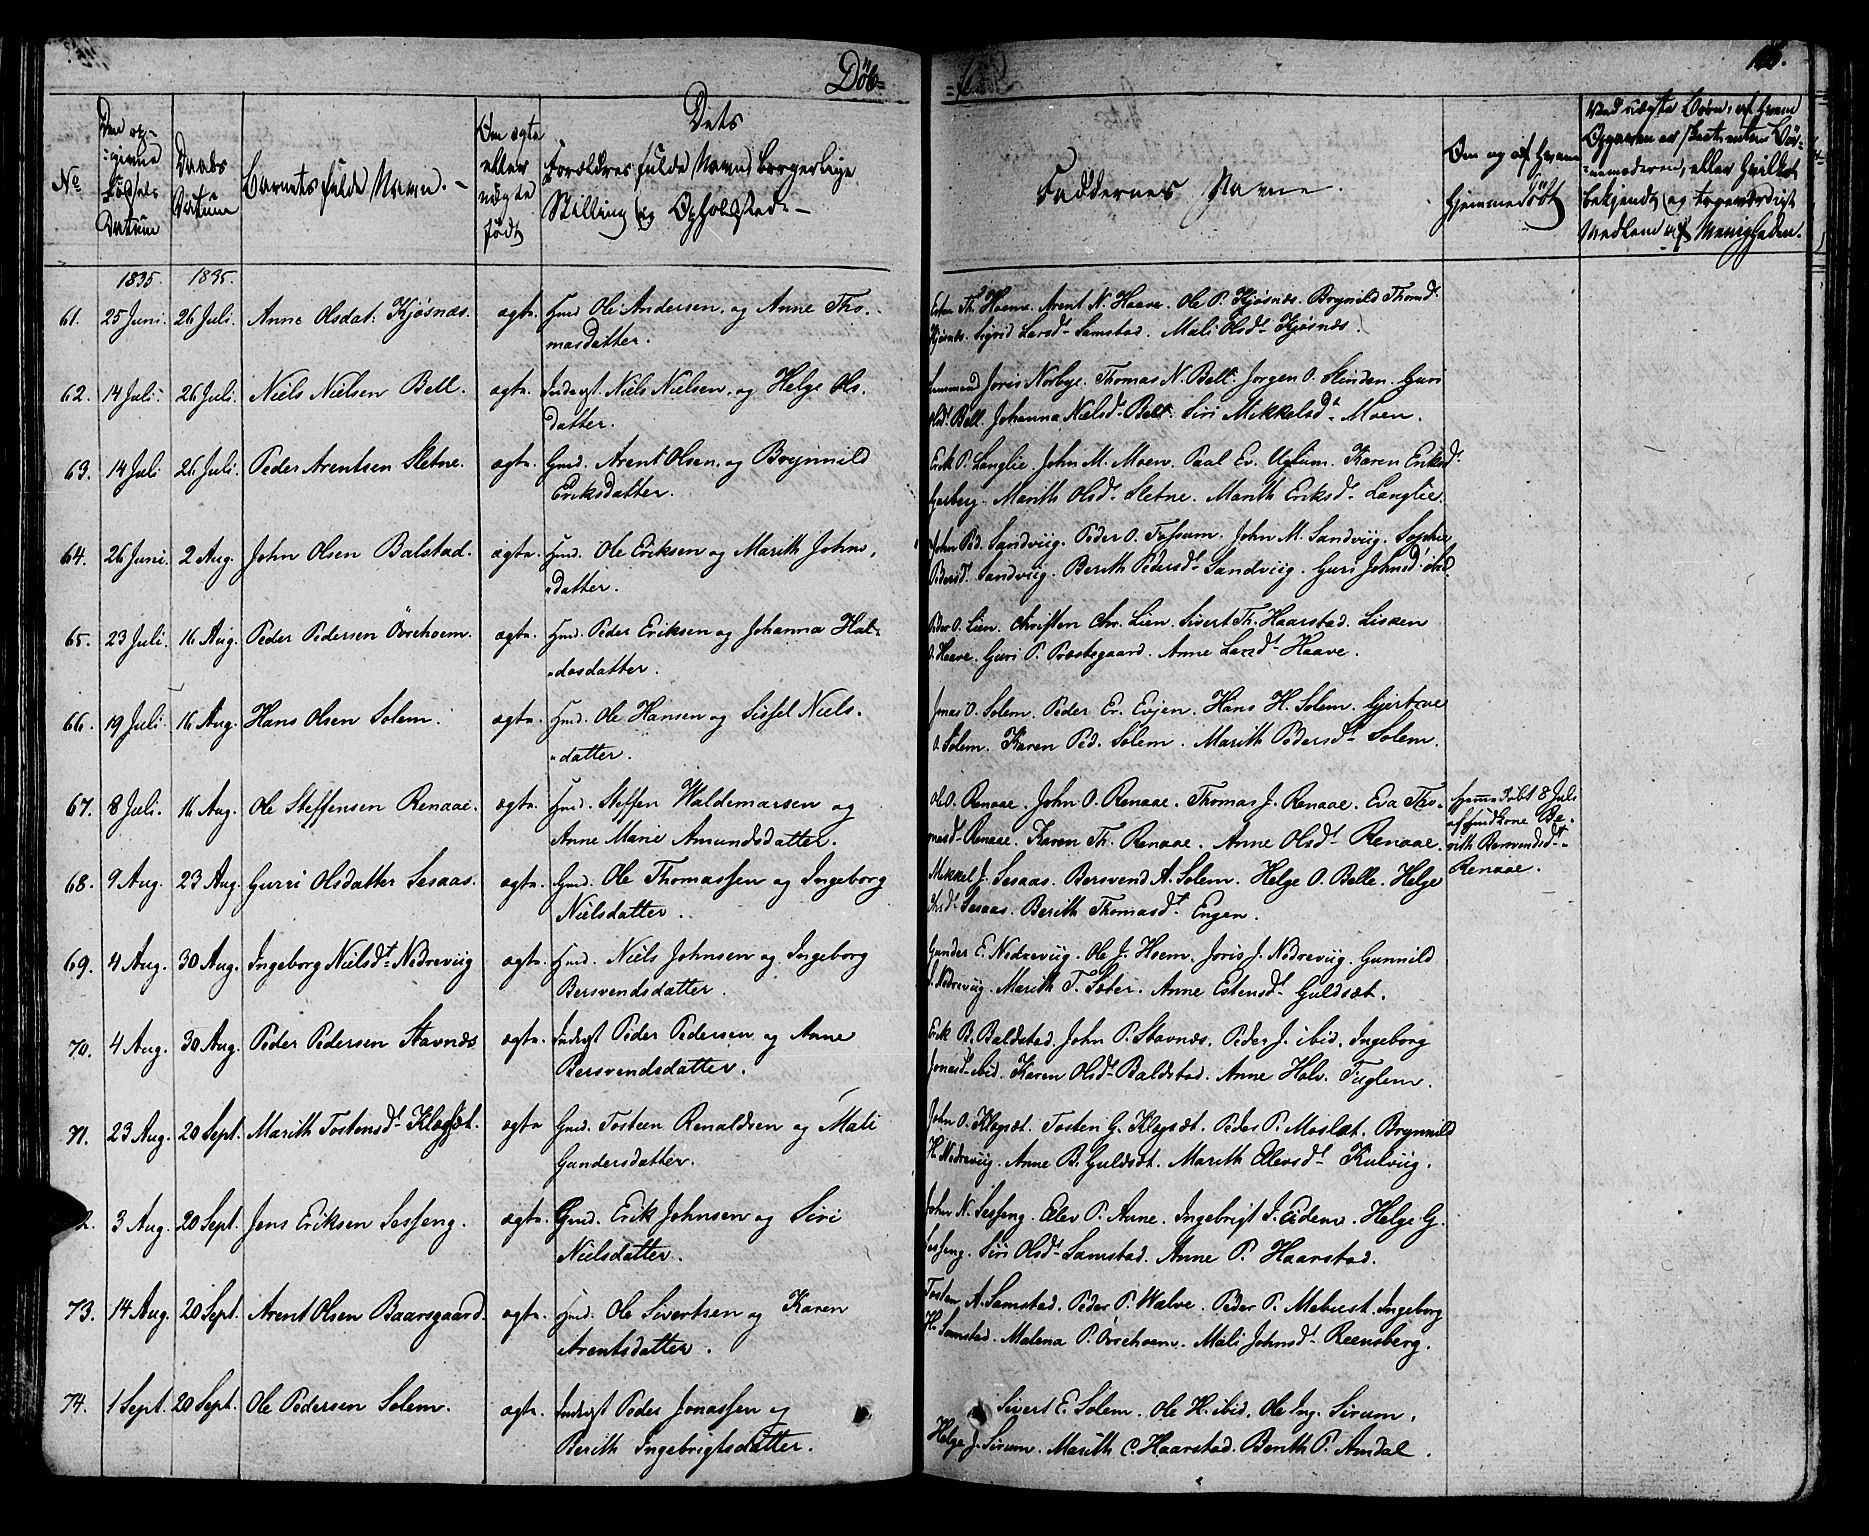 Døb=
Nº
Den op-
givne
Fødsels
Datum
Daabs
Datum
Barnets fulde Navn.
Om ægte
eller
uægte
født
Dets
Forældres fulde Navne, borgerlige
Stilling og Opholdssted.
Faddernes Navne.
Om og af hvem
hjemmedøbt
1835. 1835.
61. 25 Juni. 26 Juli. Anne Olsdat: Kjøsnæs. ægte. Gmd. Ole Andersen, og Anne Tho-
masdatter.
Esten Th. Hoeme. Arent N. Haave. Ole P. Kjøsnæs. Brynild Thomd.
Kjøsnæs. Sigrid Larsd. Samstad. Mali Olsd. Kjøsnæs.
62. 14 Juli. 26 Juli. Niels Nielsen Bell. ægte. Inderst Niels Nielsen, og Helge Ols-
datter.
Joris Norbye. Thomas N. Bell. Jørgen O. Slinden. Guri
Olsd. Bell. Johanna Nielsd. Bell. Siri Mikkelsd. Moen.
63. 14 Juli 26 Juli. Peder Arentsen Sletne. ægte. Gmd. Arent Olsen, og Brynnild
Eriksdatter.
Erik P. Langlie. John M. Moen. Paal Ev. Uglum. Karen Eriksd.
Garberg. Marith Olsd. Sletne. Marith Eriksd. Langlie.
64. 26 Juni. 2 Aug. John Olsen Balstad. ægte. Hmd. Ole Eriksen og Marith Johns-
datter.
John Ped. Sandviig. Peder O. Fossum. John M. Sandviig. Sophie
Pedersd. Sandviig. Berith Pedersd. Sandviig. Guri Johnsd. ibid.
65. 23 Juli. 16 Aug. Peder Pedersen Övrehoem. ægte. Hmd. Peder Eriksen og Johanna Hal-
dosdatter.
Peder O. Lien. Christen Chr. Lien. Sivert Th. Haarstad. Lisken
O. Haave. Guri P. Præstegaard. Anne Larsd. Haave.
66. 19 Juli. 16 Aug. Hans Olsen Solem. ægte. Hmd. Ole Hansen og Sissel Niels-
datter.
Jonas O. Solem. Peder Er. Evjen. Hans H. Solem. Gjertrue
O. Solem. Karen Ped. Solem. Marith Pedersd. Solem.
67. 8 Juli. 16 Aug. Ole Steffensen Renaae. ægte. Hmd. Steffen Waldemarsen og
Anne Marie Amundsdatter.
Ole O. Renaae. John O. Renaae. Thomas J. Renaae. Eva Tho-
masd. Renaae. Karen Th. Renaae. Anne Olsd. Renaae.
hjemedøbt 8 Juli
af Gmdkone Be-
rith Bersvendsd.
Renaae.
68. 9 Aug. 23 Aug. Gurri Olsdatter Sesaas. ægte. Gmd. Ole Thomassen og Ingeborg
Nielsdatter.
Mikkel J. Sesaas. Bersvend A. Solem. Helge O. Belle. Helge
Olsd. Sesaas. Berith Thomasd. Engen.
69. 4 Aug. 30 Aug. Ingeborg Nielsd. Nedreviig ægte. Hmd. Niels Johnsen og Ingeborg
Bersvendsdatter.
Gunder E. Nedreviig. Ole J. Hoem. Joris J. Nedreviig. Gunnild
J. Nedreviig. Marith T. Sæter. Anne Estensd. Guldsæt.
70. 4 Aug. 30 Aug. Peder Pedersen Stavnæs ægte. Inderst Peder Pedersen og Anne
Bersvendsdatter.
Erik B. Baldstad. John P. Stavnæs. Peder J. ibid. Ingeborg
Jonasd. ibid. Karen Olsd. Baldstad. Anne Halv. Fuglem.
71. 23 Aug. 20 Sept. Marith Tostensd. Klegsæt. ægte Gmd. Tosteen Renaldsen og Mali
Gundersdatter.
John O. Klegsæt. Tosten G. Klegsæt. Peder P. Moslæt. Brynnild
H. Nedreviig. Anne B. Guldsæt. Marith Elevsd. Kulviig.
2. 3 Aug. 20 Sept. Jens Eriksen Sesseng. ægte. Gmd. Erik Johnsen og Siri
Nielsdatter.
John N. Sesseng. Elev P. Aune. Ingebrigt J. Eidem. Helge G.
Sesseng. Siri Olsd. Samstad. Anne P. Haarstad.
73. 14 Aug. 20 Sept. Arent Olsen Baarsgaard. ægte. Hmd. Ole Sivertsen og Karen
Arentsdatter.
Tosten A. Samstad. Peder P. Walve. Peder P. Mebust. Ingeborg
H. Samstad. Malena P. Övrehoem. Mali Johnsd. Reensberg.
74. 1 Sept. 20 Sept. Ole Pedersen Solem. ægte. Inderst Peder Jonassen og
Berith Ingebrigtsdatter.
Sivert E. Solem. Ole H. ibid. Ole Ing. Sirum.
Helge J. Sirum. Marith C. Haarstad. Berith P. Amdal.